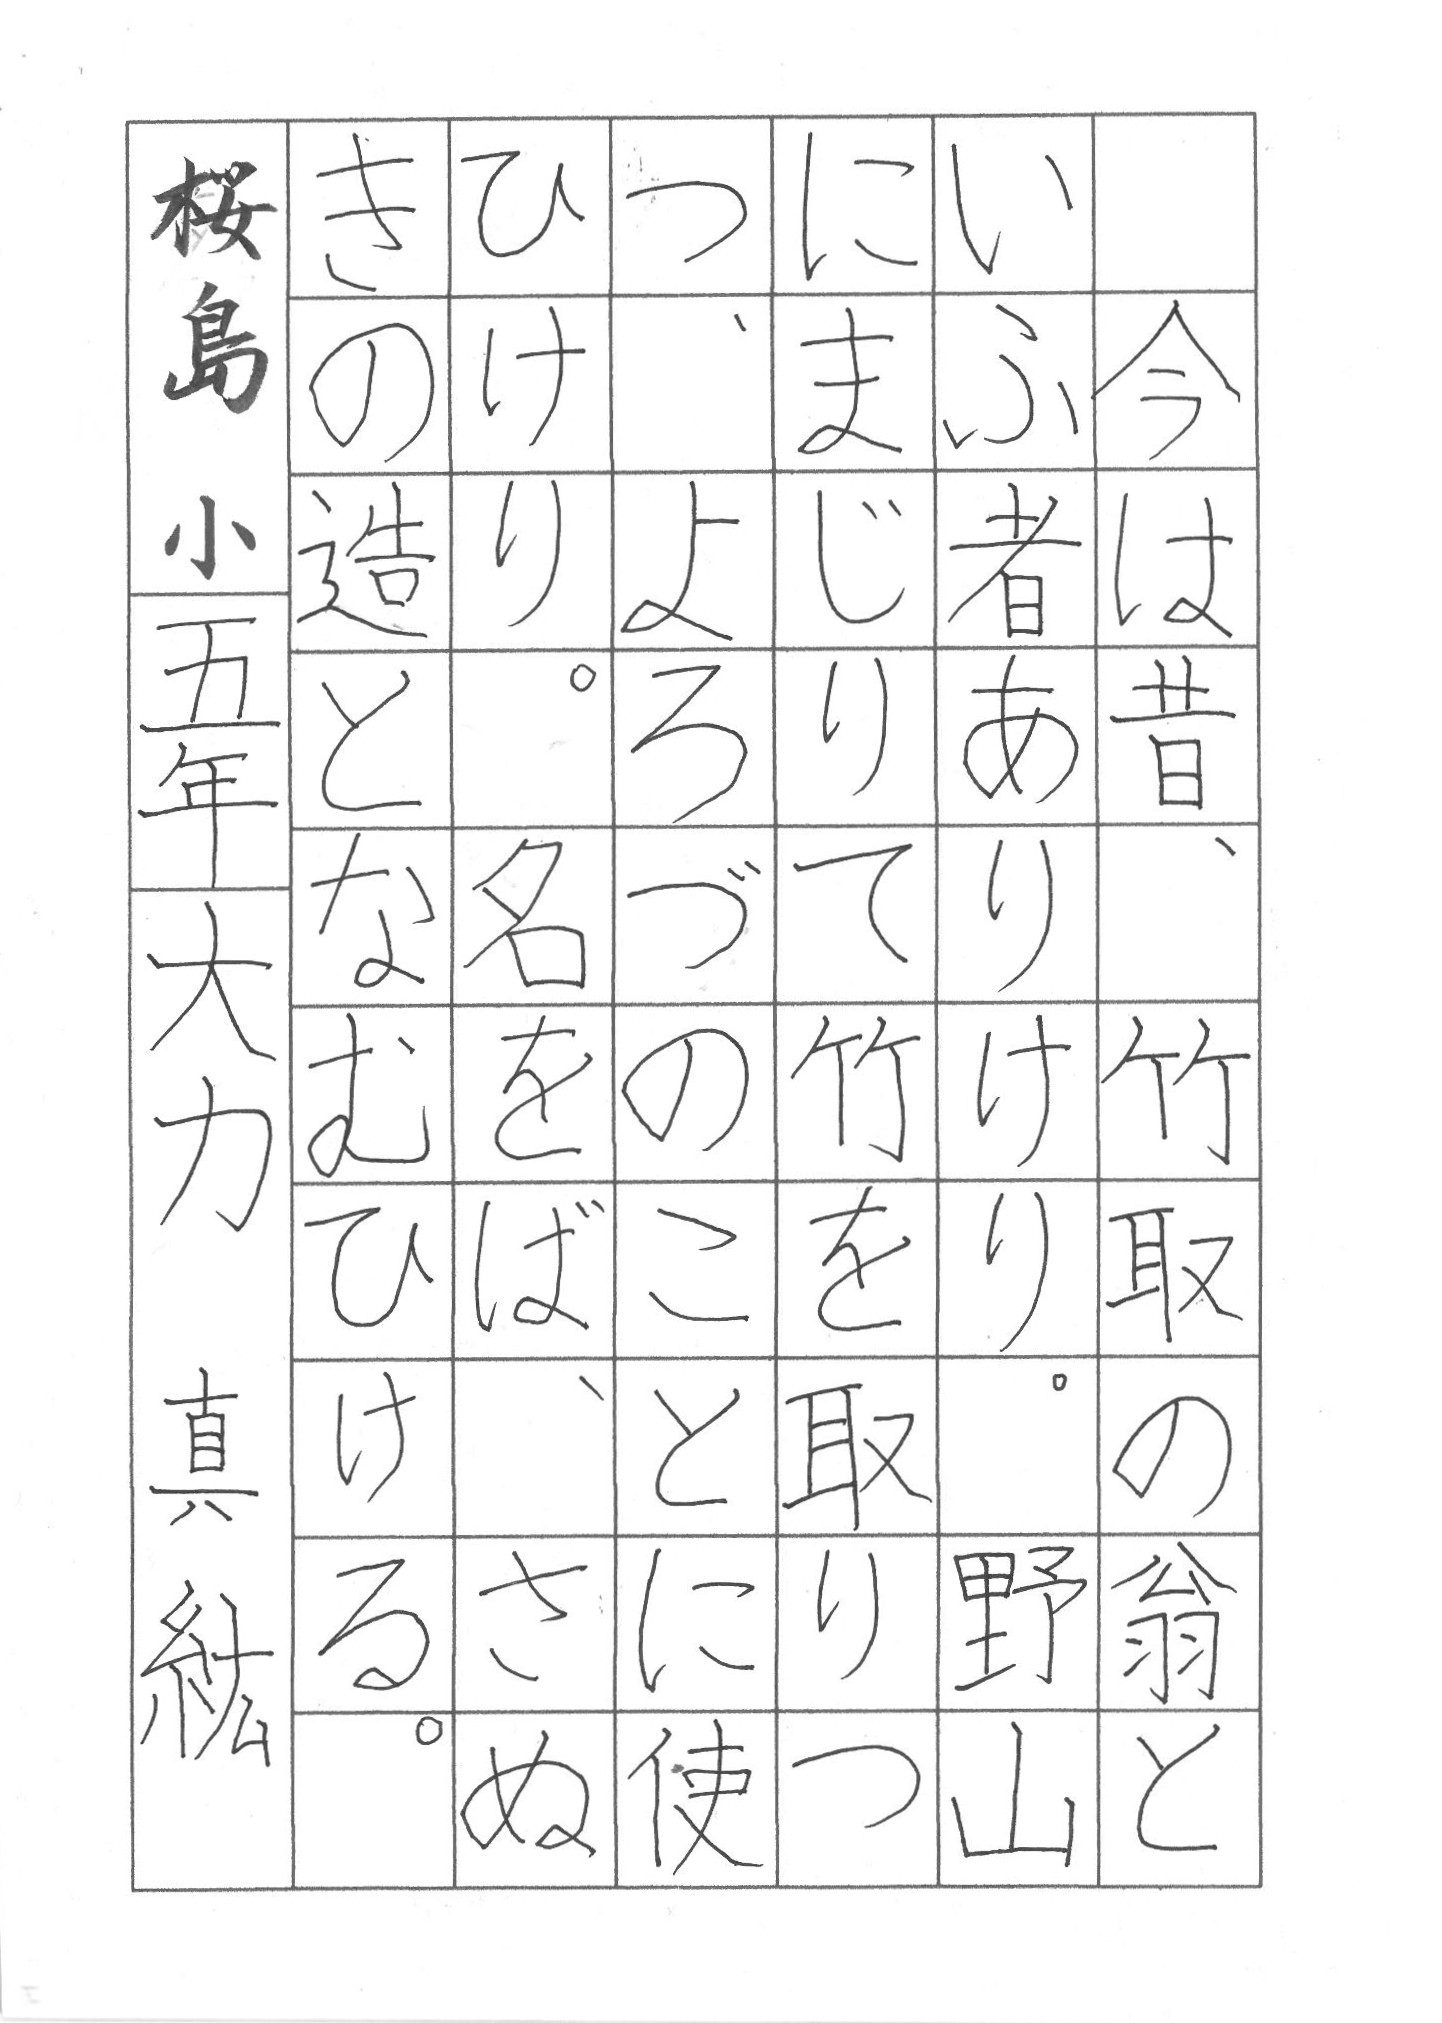 今は昔、竹取の翁と
いふ者ありけり。野山
にまじりて竹を取りつ
つ、よろづのことに使
ひけり。名をば、さぬ
きの造となむひける。
桜島小五年大力真紘